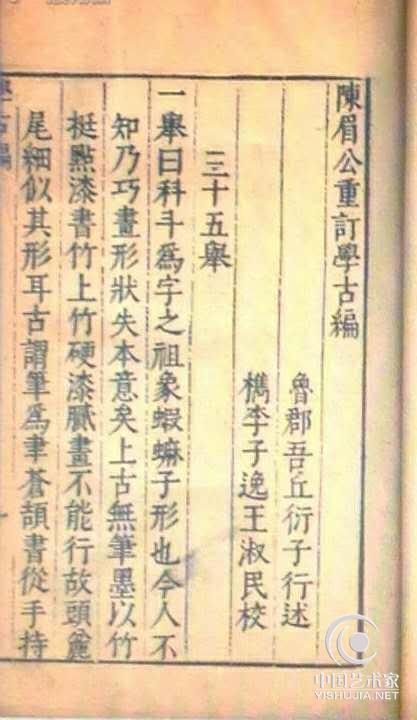 陳眉公重訂學古編
魯郡吾丘衍子行述
檇李子逸王淑民校
三十五舉
一舉曰科斗爲字之祖象蝦蟆子形也今人不
知乃巧畫形狀失本意矣上古無筆墨以竹
挺點漆書竹上竹硬漆膩畫不能行故頭麄
尾細似其形耳古謂筆爲聿蒼頡書從手持
中国艺术家
YISHUJIA.NET